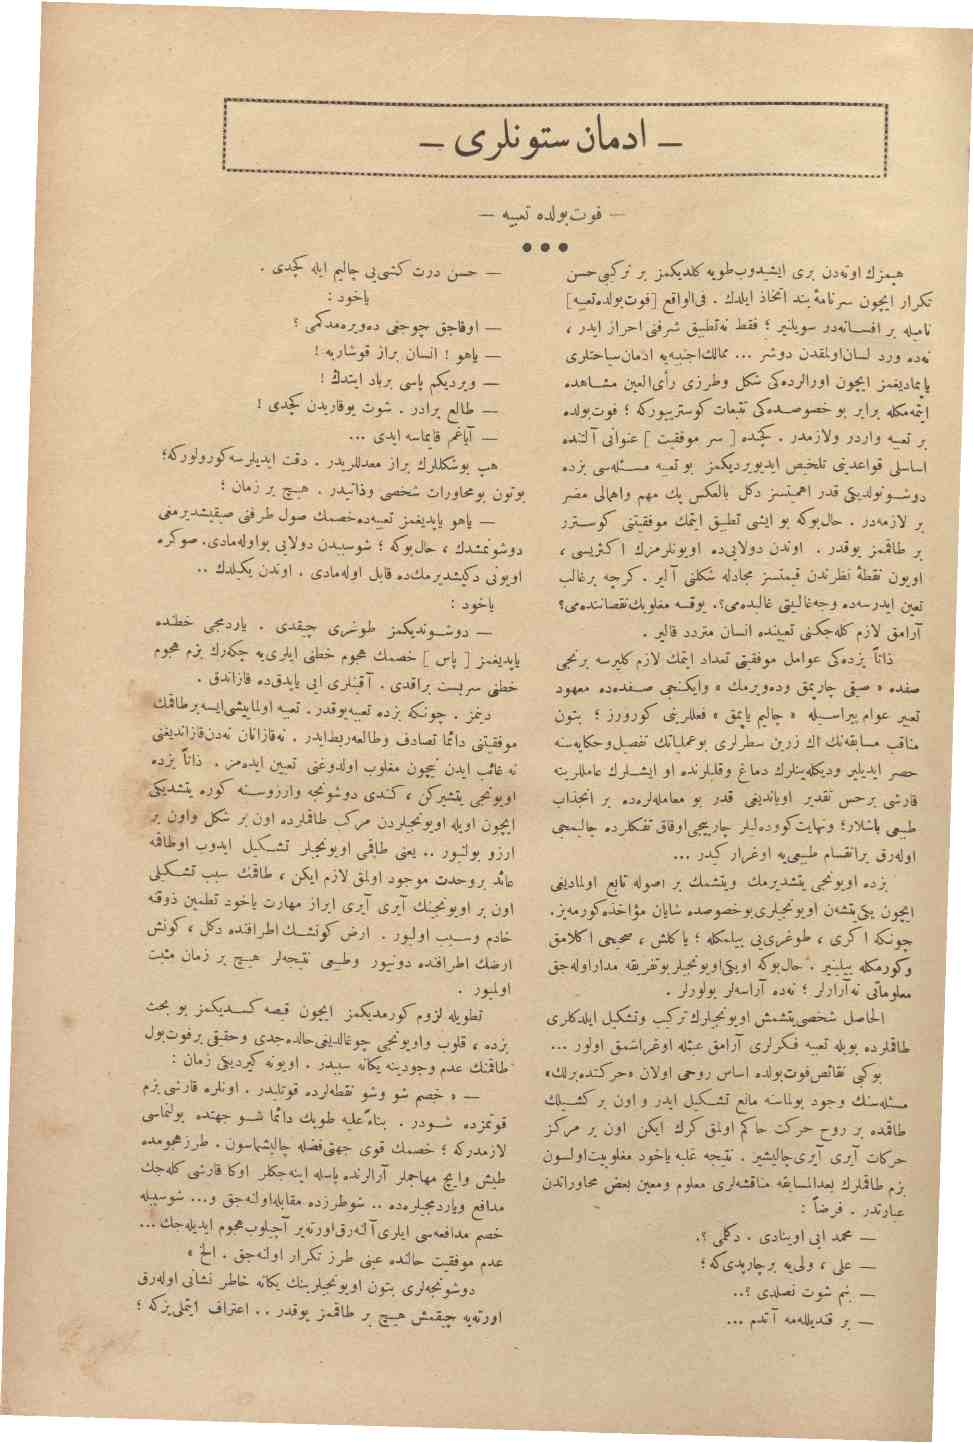 — ادمان ستونلری —
— فوت‌بولده تعبیه —
هپمزك اوته‌دن بری ایشیدوب‌طویه كلدیكمز بر تركیبی‌حسن
تكرار ایچون سرنامۀ بند اتخاذ ایلدك . فی‌الواقع [فوت‌بولده‌تعبیه]
نامیله بر افسانه‌در سویلنیر ؛ فقط نه‌تطبیق شرفنی احراز ایدر ،
نه‌ده ورد لسان‌اولمقدن دوشر ... ممالك‌اجنبیه‌یه ادمان‌سیاحتلری
یاپمادیغمز ایچون اورالرده‌كی شكل وطرزی رأی‌العین مشاهده
ایتمه‌مكله برابر بو خصوصده‌كی تتبعات كوستریبوركه ؛ فوت‌بولده
بر تعبیه واردر ولازمدر . كچنده [ سر موفقیت ] عنوانی آلتنده
اساسلی قواعدینی تلخیص ایدیویردیكمز بو تعبیه مسئله‌سی بزده
دوشونولدیكی قدر اهمیتسز دكل بالعكس پك مهم واهمالی مضر
بر لازمه‌در . حال‌بوكه بو ایشی تطبیق ایتمك موفقیتنی كوسترر
بر طاقمز یوقدر . اوندن دولایی‌ده اویونلرمزك اكثریسی ،
اویون نقطۀ نظرندن قیمتسز مجادله شكلنی آلیر . كرچه برغالب
تعین ایدرسه‌ده وجه‌غالبیتی غالبده‌می؟. یوقسه مغلوبك‌نقصاننده‌می؟
آرامق لازم كله‌جكنی تعیینده انسان متردد قالیر .
ذاتاً بزده‌كی عوامل موفقیتی تعداد ایتمك لازم كلیرسه برنجی
صفده « صیقی چارپمق وده‌ویرمك » وایكنجی صفده‌ده معهود
تعبیر عوام پیراسیله « چالیم یاپمق » فعللرینی كورورز ؛ بتون
مناقب مسابقه‌نك اك زرین سطرلری بوعملیاتك تفصیل‌وحكایه‌سنه
حصر ایدیلیر ودیكله‌ینلرك دماغ وقلبلرنده او ایشلرك عامللرینه
قارشی برحس تقدیر اویاندیغی قدر بو معامله‌لره‌ده بر انجذاب
طبیعی باشلار؛ ونهایت‌كووده‌لیلر چارپیجی‌اوفاق تفكلرده چالیمجی
اوله‌رق برانقسام طبیعی‌یه اوغرار كیدر ...
بزده اویونجی یتشدیرمك ویتشمك بر اصوله تابع اولمادیغی
ایچون یكی‌یتشه‌ن اویونجیلری‌بوخصوصده شایان مؤاخذه‌كورمه‌یز.
چونكه اكری ، طوغری‌یی بیلمكله ؛ یاكلش ، صحیحی اكلامق
وكورمكله بیلینیر . حال‌بوكه اویكی‌اویونجیلربوتفریقه مداراوله‌جق
معلوماتی نه‌آرارلر ؛ نه‌ده آراسه‌لر بولورلر .
الحاصل شخصی‌یتشمش اویونجیلرك تركیب وتشكیل ایلدكلری
طاقملرده بویله تعبیه فكرلری آرامق عبثله اوغراشمق اولور ...
بوكبی نقائص‌فوت‌بولده اساس روحی اولان «حركتده‌برلك»
مسئله‌سنك وجود بولماسنه مانع تشكیل ایدر و اون بر كشیلك
طاقمده بر روح حركت حاكم اولمق كرك ایكن اون بر مركز
حركات آیری آیری‌چالیشیر . نتیجه غلبه یاخود مغلوبیت‌اولسون
بزم طاقملرك بعدالمسابقه مناقشه‌لری معلوم ومعین بعض محاوراتدن
عبارتدر . فرضاً :
— محمد ایی اوینادی . دكلمی ؟.
— علی ، ولی‌یه برچارپدی‌كه ؛
— بنم شوت نصلدی ؟..
— بر قندیلله‌مه آتدم ...
— حسن درت كشی‌یی چالیم ایله كچدی .
یاخود :
— اوقاجق چوجغی ده‌ویره‌مدكمی ؟
— یاهو ! انسان براز قوشاربه !
— ویردیكم پاسی برباد ایتدك !
— طالع برادر . شوت یوقاریدن كچدی !
— آیاغم قایماسه ایدی ...
هپ بوشكللرك براز معدللریدر . دقت ایدیلرسه‌كورولوركه؛
بوتون بومحاورات شخصی وذاتیدر . هیچ بر زمان ؛
— یاهو یاپدیغمز تعبیه‌ده‌خصمك صول طرفنی صیقیشدیرمغی
دوشونمشدك ، حال‌بوكه ؛ شوسببدن دولایی بواوله‌مادی. صوكره
اویونی دكیشدیرمك‌ده قابل اوله‌مادی . اوندن یكلدك ..
یاخود :
— دوشوندیكمز طوغری چیقدی . یاردمجی خطنده
یاپدیغمز [ پاس ] خصمك هجوم خطنی ایلری‌یه چكه‌رك بزم هجوم
خطنی سربست براقدی . آقینلری ایی یاپدق‌ده قازاندق .
دینمز . چونكه بزده تعبیه‌یوقدر . تعبیه اولمایینجی‌ایسه‌برطاقمك
موفقیتنی دائما تصادف وطالعه‌ربط‌ایدر . نه‌قازانان نه‌دن‌قازاندیغنی
نه غائب ایدن نیچون مغلوب اولدوغنی تعیین ایده‌مز . ذاتاً بزده
اویونجی یتشیركن ، كندی دوشونجه وآرزوسنه كوره یتشدیكی
ایچون اویله اویونجیلردن مركب طاقملرده اون بر شكل واون بر
ارزو بولنیور .. یعنی طاقمی اویونجیلر تشكیل ایدوب اوطاقمه
عائد بروحدت موجود اولمق لازم ایكن ، طاقمك سبب تشكیلی
اون بر اویونجینك آیری آیری ابراز مهارت یاخود تطمین ذوقنه
خادم وسبب اولیور . ارض كونشك اطرافنده دكل ، كونش
ارضك اطرافنده دونیور وطبیعی نتیجه‌لر هیچ بر زمان مثبت
اولمیور .
تطویله لزوم كورمدیكمز ایچون قیصه كسدیكمز بو بحث
بزده ، قلوب واویونجی چوغالدیغی‌حالده‌جدی وحقیقی برفوت‌بول
طاقمنك عدم وجودینه یكانه سببدر . اویونه كیردیكی زمان :
— « خصم شو وشو نقطه‌لرده قوتلیدر . اونلره قارشی بزم
قوتمزده شودر . بناءً علیه طوپك دائما شو جهتده بولنماسی
لازمدركه ؛ خصمك قوی جهتی‌فضله چالیشماسون . طرز هجومده
طیش وایچ مهاجملر آرالرنده پاسله اینه‌جكلر اوكا قارشی كله‌جك
مدافع ویاردمجیلره‌ده .. شوطرزده مقابله‌اولنه‌جق و... شوسیله
خصم مدافعه‌سی ایلری‌آلنه‌رق‌اورته‌یر آچیلوب‌هجوم ایدیله‌جك...
عدم موفقیت حالنده عینی طرز تكرار اولنه‌جق . الخ »
دوشونجه‌لری بتون اویونجیلرینك یكانه خاطر نشانی اوله‌رق
اورته‌یه چیقمش هیچ بر طاقمز یوقدر .. اعتراف ایتملی‌یزكه ؛